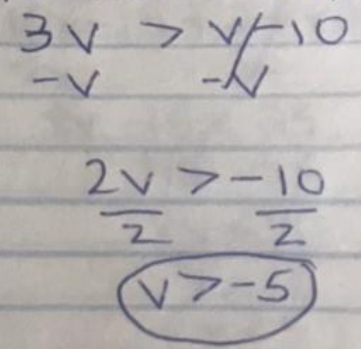 3v > v - 10
-v -v
2v > -10
2 2
v > -5